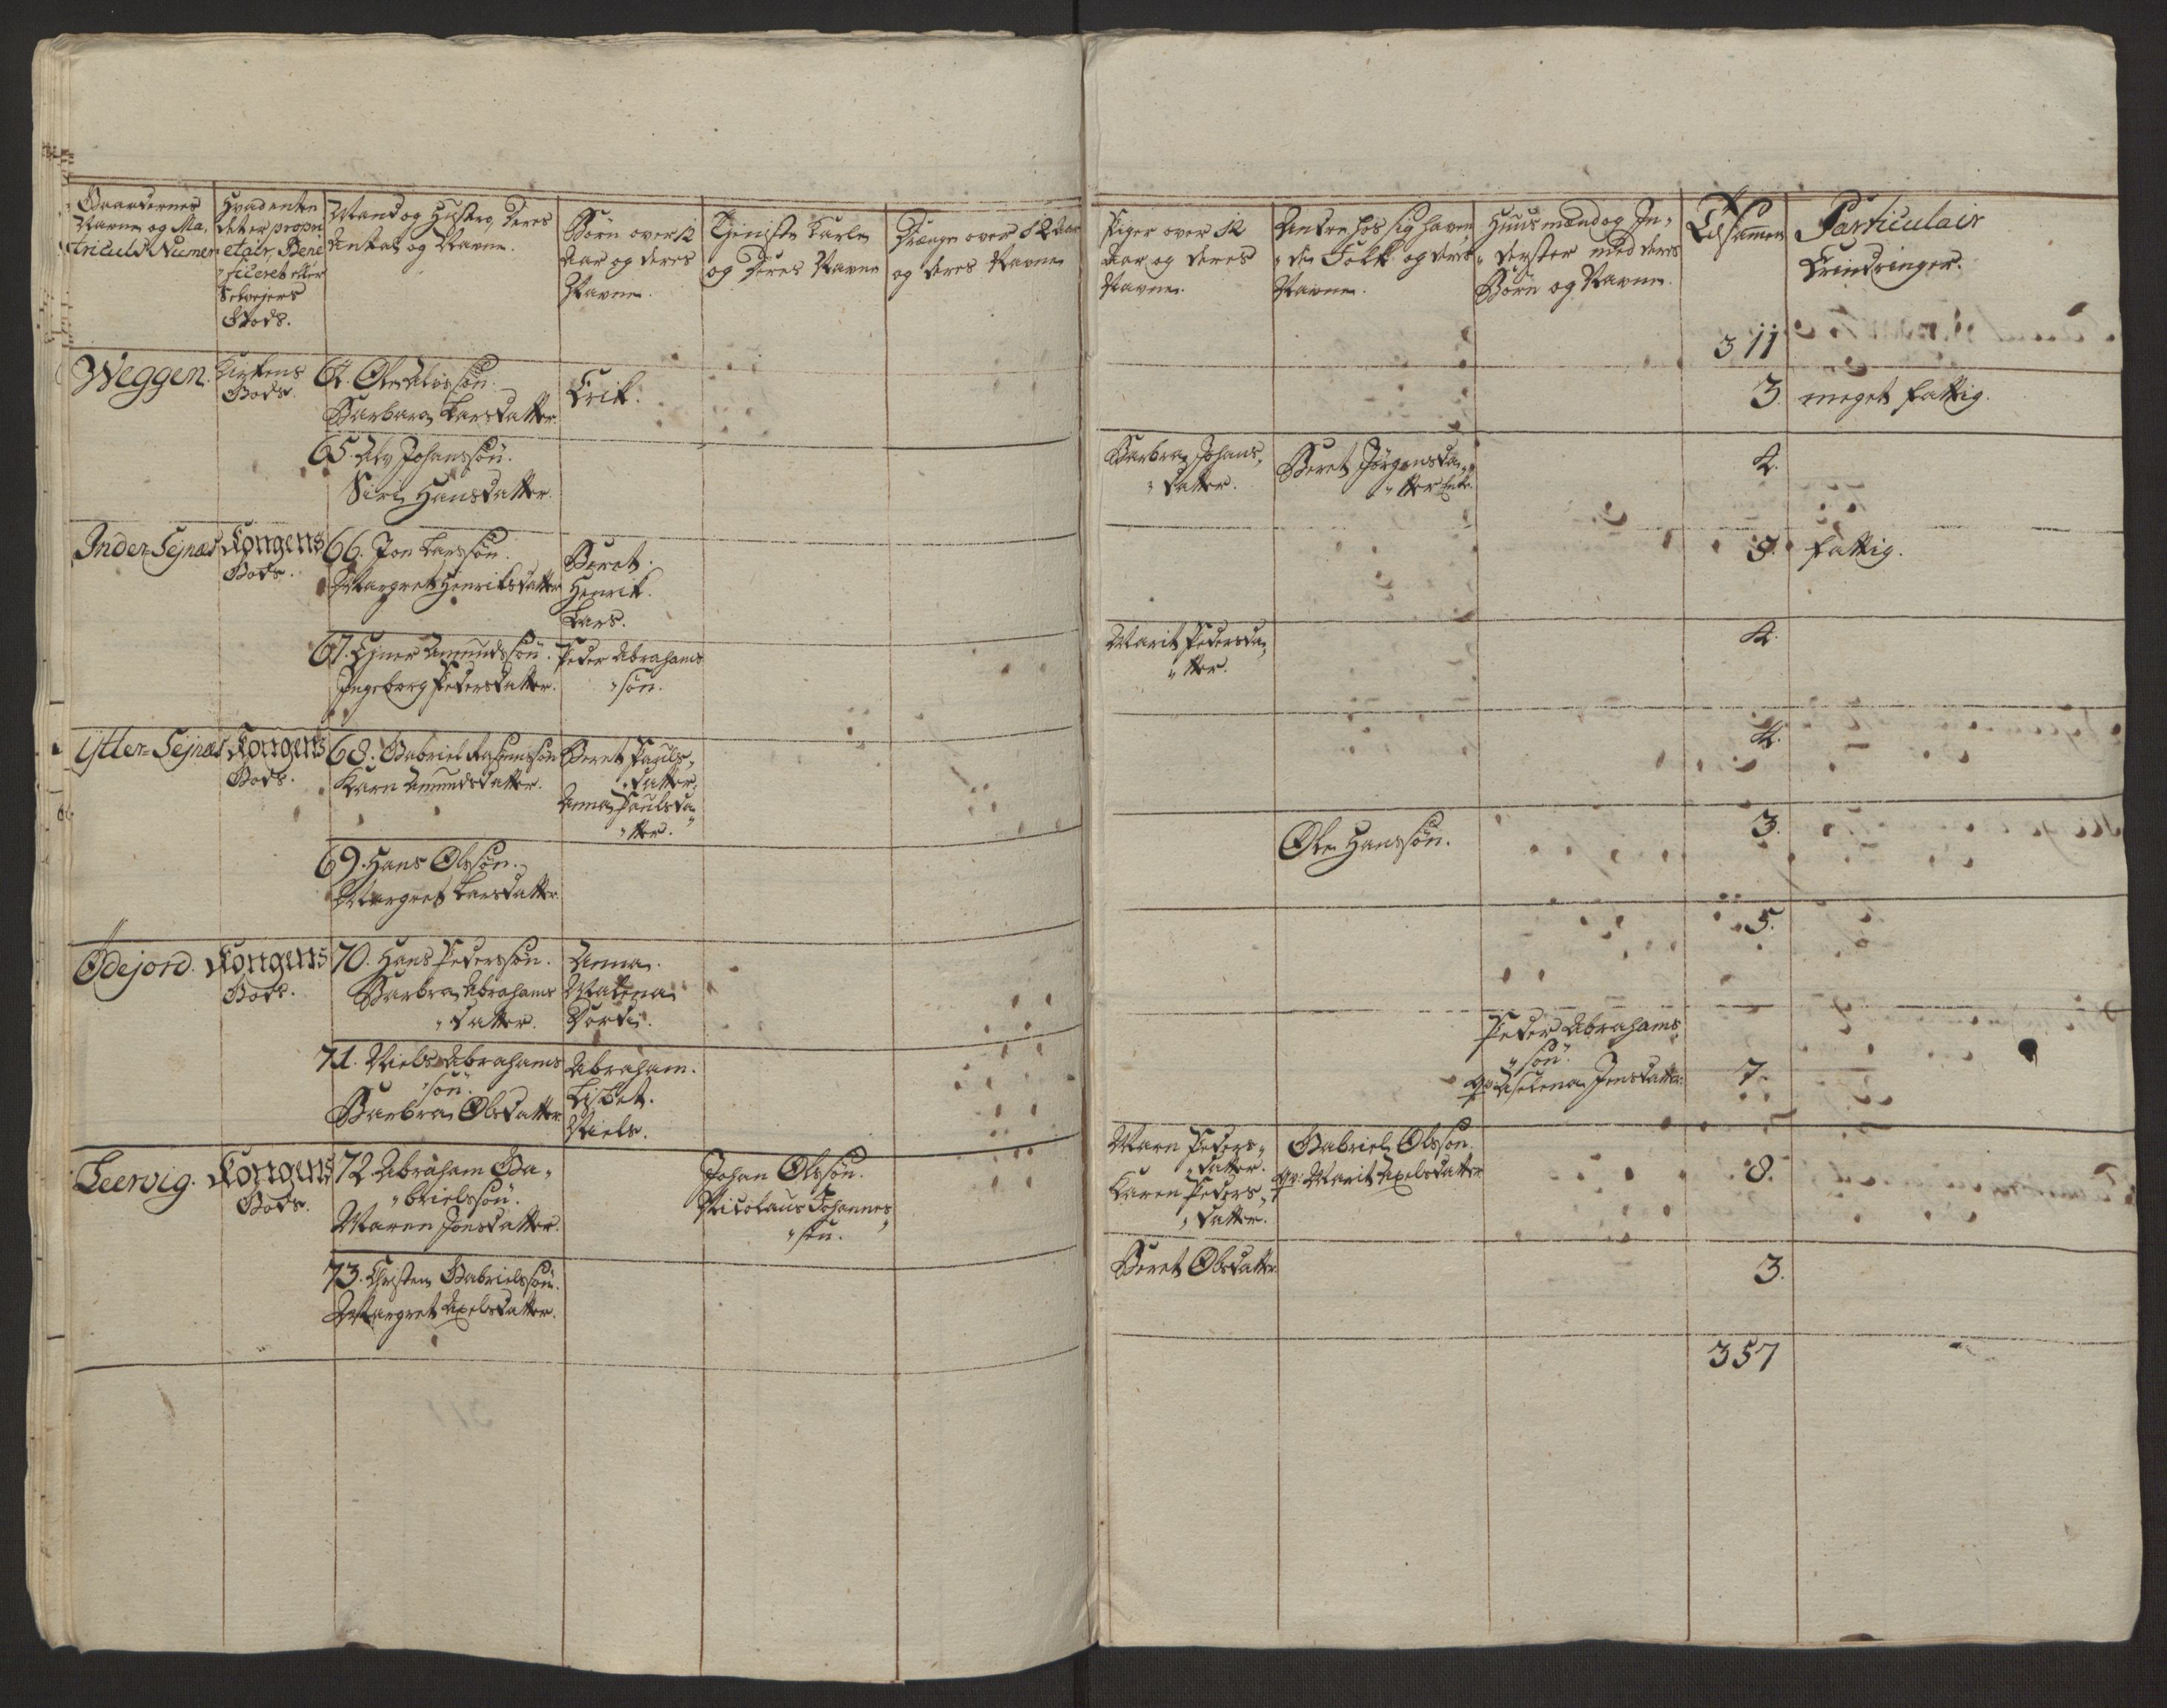 Gaardernes
Navne og Ma,
triculs Numer
Hvad enten
det er propri
etair, Bene
ficeret eller
Selvejers
Gods.
Mand og Hustro, deres
Antal og Navne.
Børn over 12
Aar og deres
Navne.
Tjeniste Karle
og deres Navne
Drænge over 12 Aar
og deres Navne
Piger over 12
Aar og deres
Navne.
Andre hos sig haven
de Folk og deres
Navne.
Huusmænd og In,
derster med deres
Børn og Navne.
Tilsammen
Particulair
Erindringer.
311
Weggen.
Kirkens
Gods.
64. Ole Olssøn.
Barbara Larsdatter
Erik.
3.
meget fattig.
65. Ole Johanssøn.
Siri Hansdatter.
Barbra Johans,
datter.
Beret Jørgensda,
tter Enke.
4.
Inder-Sejnæs
Kongens
Gods.
66. Jon Larssøn.
Margret Henriksdatter
Beret.
Henrik.
Lars.
5.
fattig.
67. Ejner Amundssøn.
Ingeborg Pedersdatter.
Peder Abrahams
søn.
Marit Pedersda,
tter.
4.
Ytter-Sejnæs
Kongens
Gods.
68. Gabriel Rasmussøn
Karn Amundsdatter.
Beret Pauls,
datter,
Anna Paulsda,
tter.
4.
69. Hans Olssøn.
Margret Larsdatter
Ole Hanssøn.
3.
Ødejord.
Kongens
Gods.
70. Hans Pederssøn.
Barbra Abrahams
datter.
Anna.
Malena
Dorde.
5.
71. Niels Abrahams
søn.
Barbra Olsdatter
Abraham.
Lisbet.
Niels.
Peder Abrahams
søn.
qv: Aselena Jensdatter
7.
Leervig.
Kongens
Gods.
72. Abraham Ga,
brielssøn.
Maren Jonsdatter.
Johan Olssøn.
Nicolaus Johannes,
søn.
Maren Peders,
datter.
Karen Peders,
datter.
Gabriel Olssøn.
qv: Marit Axelsdatter
8.
73. Christen Gabrielssøn.
Margret Axelsdatter.
Beret Olsdatter
3.
357